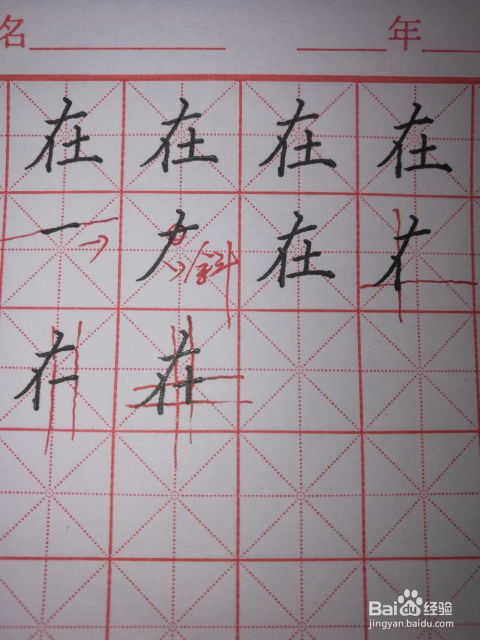 名 年
在 在 在 在
一 ナ 斜 在 亻
在 在
Baidu 经验
jingyan.baidu.com